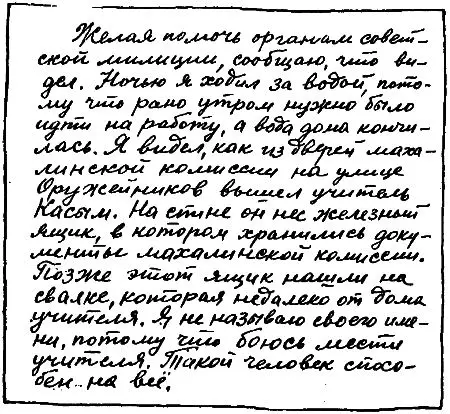 Желая помочь органам совет-
ской милиции, сообщаю, что ви-
дел. Ночью я ходил за водой, пото-
му что рано утром нужно было
идти на работу, а вода дома кончи-
лась. Я видел, как из дверей маха-
линской комиссии на улице
Оружейников вышел учитель
Касым. На спине он нес железный
ящик, в котором хранились доку-
менты махалинской комиссии.
Позже этот ящик нашли на
свалке, которая недалеко от дома
учителя. Я не называю своего име-
ни, потому что боюсь мести
учителя. Такой человек спосо-
бен на всё.